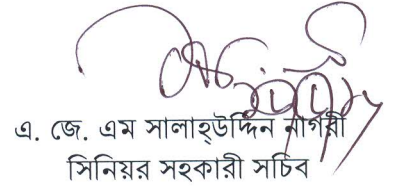 এ. জে. এম সালাহ্উদ্দিন নাগরী
সিনিয়র সহকারী সচিব